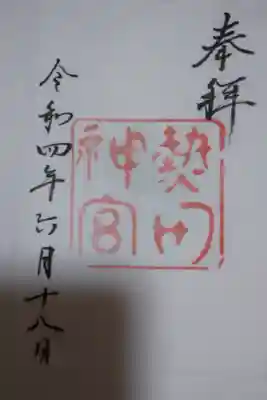 奉拝
熱田神宮
令和四年六月十八日